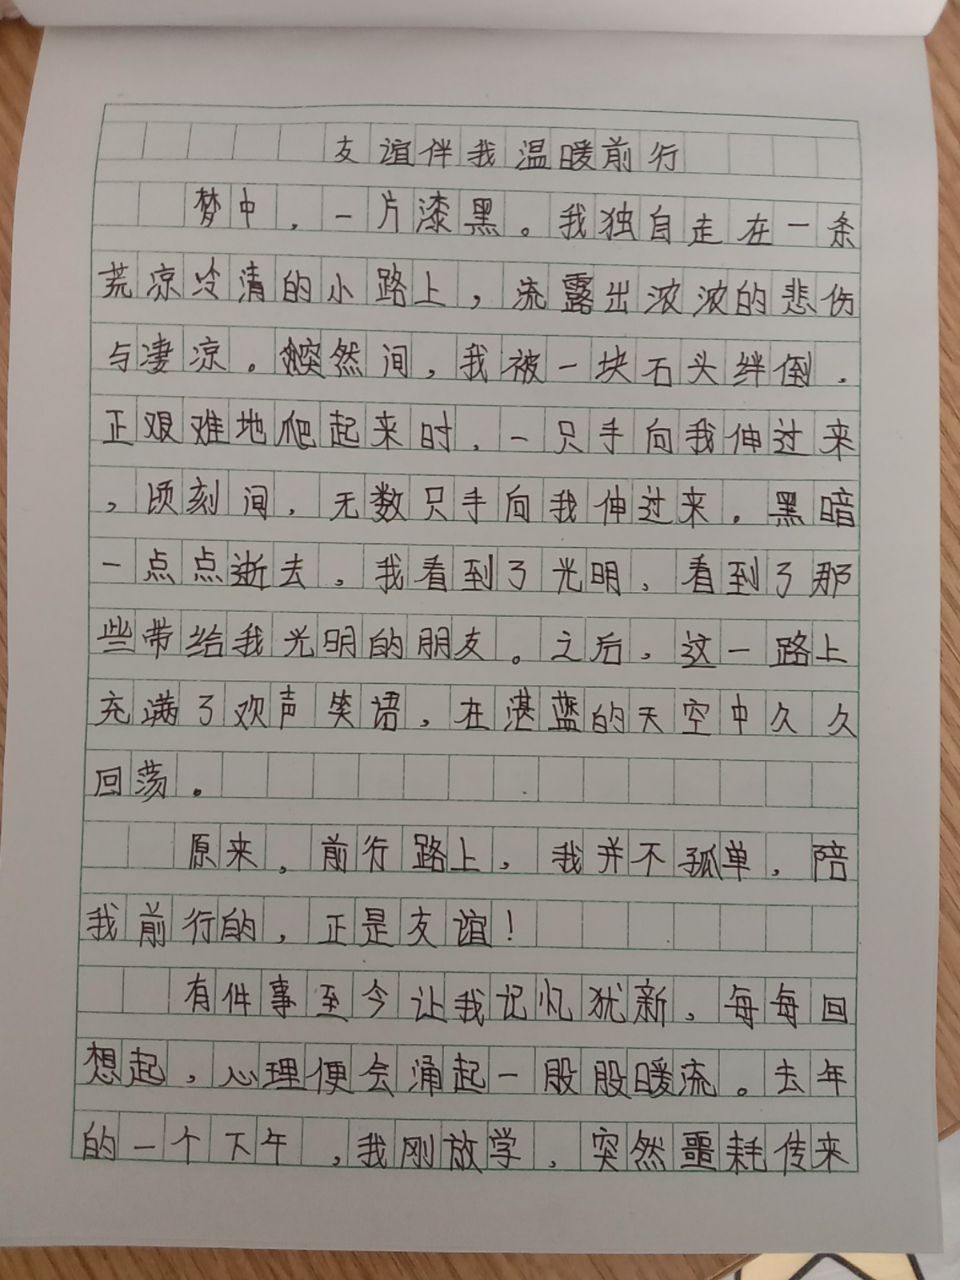 友谊伴我温暖前行
梦中，一片漆黑。我独自走在一条
荒凉冷清的小路上，流露出浓浓的悲伤
与凄凉。突然间，我被一块石头绊倒．
正艰难地爬起来时，一只手向我伸过来
，顷刻间，无数只手向我伸过来。黑暗
一点点逝去，我看到了光明，看到了那
些带给我光明的朋友。之后，这一路上
充满了欢声笑语，在湛蓝的天空中久久
回荡。
原来，前行路上，我并不孤单，陪
我前行的，正是友谊！
有件事至今让我记忆犹新，每每回
想起，心理便会涌起一股股暖流。去年
的一个下午，我刚放学，突然噩耗传来